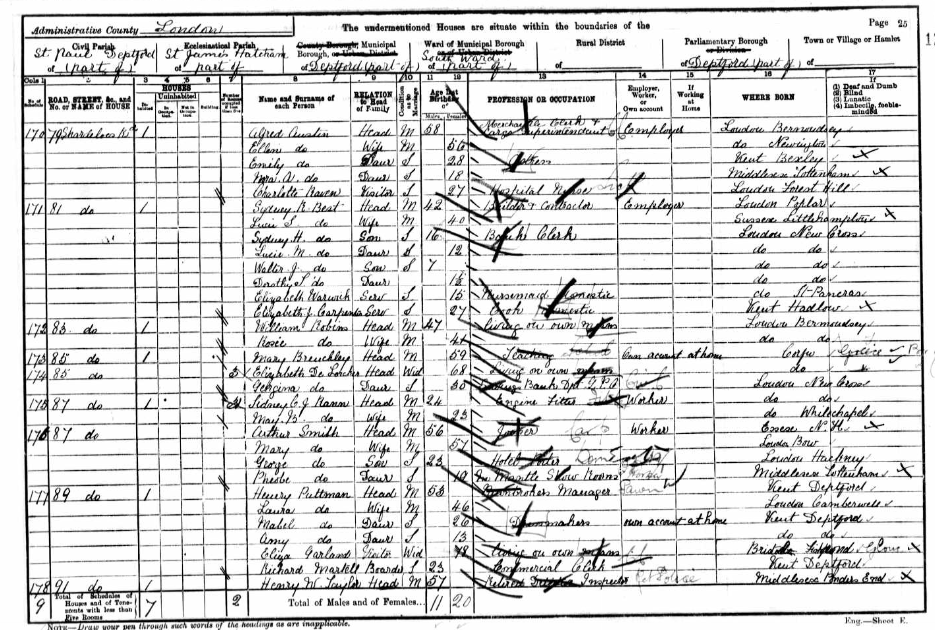 Page 25
Administrative County London
The undermentioned Houses are situate within the boundaries of the
Civil Parish
Ecclesiastical Parish
County Borough, Municipal Borough, or Urban District
Ward of Municipal Borough or of Urban District
Rural District
Parliamentary Borough or Division
Town or Village or Hamlet
St. Paul Deptford (part of)
St. James Hatcham part of
of Deptford (part of)
South Ward of (part of)
of Deptford (part of)
Cols 1 2 3 4 5 6 7 8 9 10 11 12 13 14 15 16 17
No. of Schedule
ROAD, STREET, &c., and No. or NAME of HOUSE
HOUSES
Uninhabited
Building
Name and Surname of each Person
RELATION to Head of Family
Age last Birthday of
Males Females
PROFESSION OR OCCUPATION
Employer, Worker, or Own account
If Working at Home
WHERE BORN
(1) Deaf and Dumb
(2) Blind
(3) Lunatic
(4) Imbecile, feeble-minded
170 79 1 Alfred Austin Head M 58 Clerk & Employer London Bermondsey
Ellen do Wife M 56 do Newington
Emily do Daur S 28 Kent Bexley
A. do Daur S 18 Middlesex Tottenham
Charlotte Raven Visitor S 27 Hospital Nurse London Forest Hill
171 81 do 1 Sydney R. Best Head M 42 Builder & Contractor Employer London Poplar
Lucie S. do Wife M 40 Sussex Littlehampton
Sydney H. do Son S 16 Bank Clerk London New Cross
Lucie M. do Daur S 12 do do
Walter J. do Son S 7 do do
Dorothy L. do Daur do do
Elizabeth Warwick Serv S 15 Nursemaid Domestic do St Pancras
Elizabeth J. Carpenter Serv S 27 Cook Domestic Kent Hadlow
172 83 do 1 William Robins Head M 47 Living on own means London Bermondsey
Rosie do Wife M do do
173 85 do 1 Mary Head M 59 Teaching Own account at home Corfu Greece
174 85 do 3 Elizabeth De Head Wid 68 Living on own means do
Georgina do Daur S 30 Bank Dpt G.P.O London New Cross
175 87 do 1 Sidney E. J. Head M 24 Engine Fitter Worker do do
May B. do Wife M 23 do Whitechapel
176 87 do Arthur Smith Head M 56 Worker Essex
Mary do Wife M 57 London Bow
George do Son S 23 Hotel Porter London Hackney
Phoebe do Daur S 19 In Mantle Show Rooms Middlesex Tottenham
177 89 do 1 Henry Puttman Head M 53 Pawnbrokers Manager Kent Deptford
Laura do Wife M 46 London Camberwell
Mabel do Daur S 26 Dressmakers own account at home Kent Deptford
Amy do Daur S 13 do do
Eliza Garland Visitor Wid 78 Living on own means
Richard Martell Boarder S 23 Commercial Clerk Kent Deptford
178 91 do 1 Henry W. Taylor Head M 57 Retired Inspector Ret Police Middlesex Ponders End
9 Total of Schedules of Houses and of Tenements with less than Five Rooms 7 2 Total of Males and Females... 11 20
NOTE—Draw your pen through such words of the headings as are inapplicable.
Eng.—Sheet E.